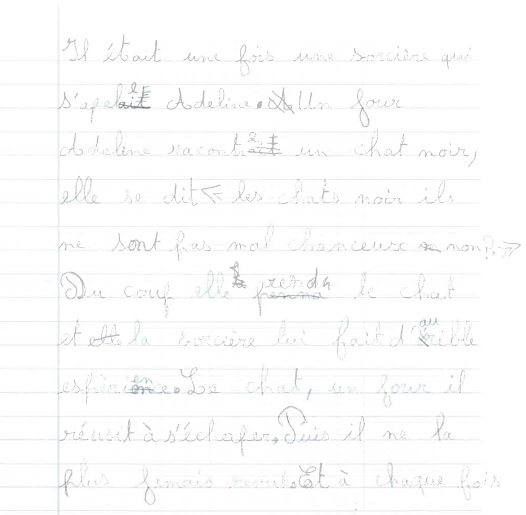 Il était une fois une sorcière qui
s'apelait Adeline. Un jour
Adeline racontrait un chat noir,
elle se dit « les chats noir ils
ne sont pas mal chanceuse non ?. »
Du coup elle renda le chat
et la sorcière lui fait d'
espérience. Le chat, un jour il
réeusit à s'échaper. Puis il ne la
plus jamais revut. Et à chaque fois